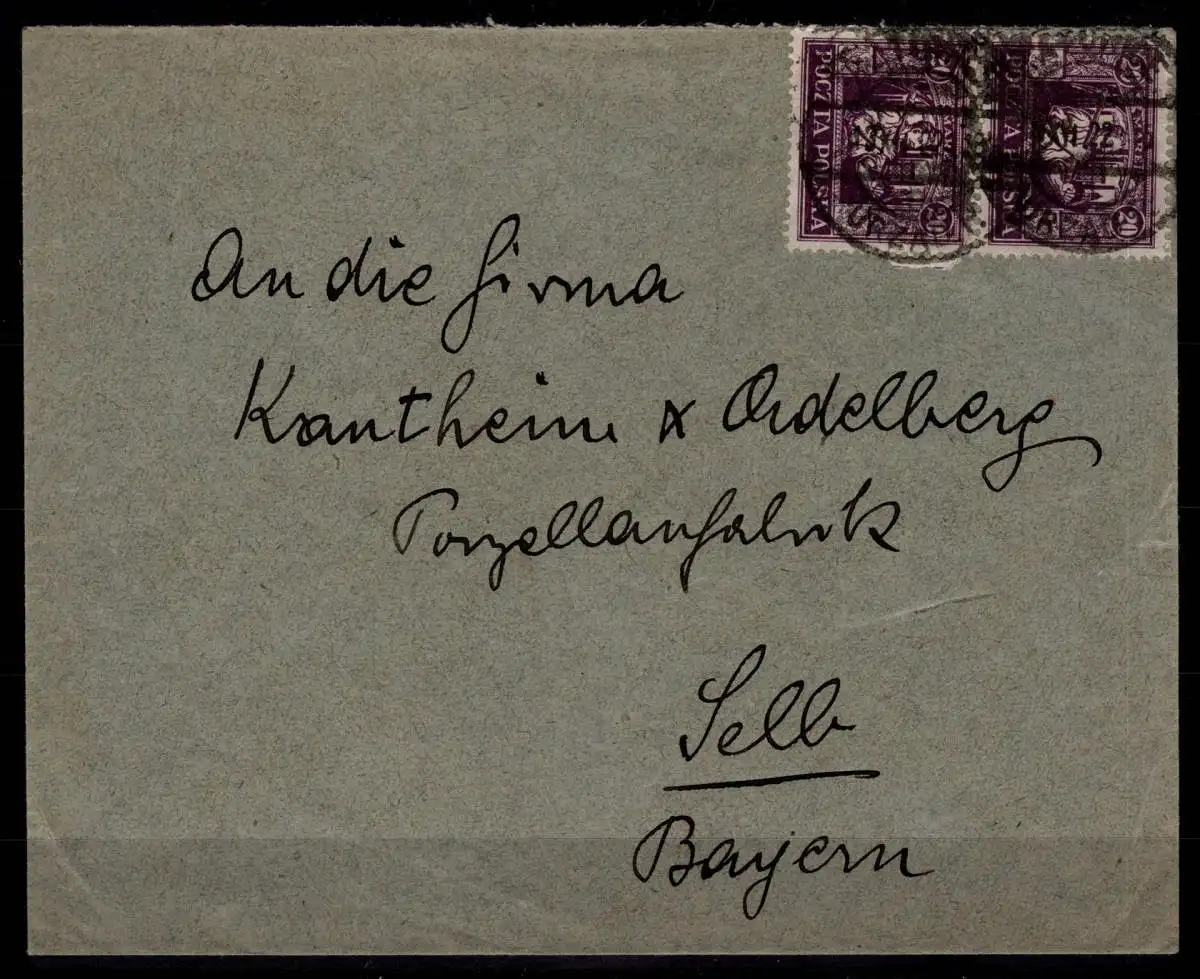 An die Firma
Krautheim & Adelberg
Porzellanfabrik
Selb
Bayern
POCZTA POLSKA
20
20
POCZTA POLSKA
20
20
XII 22